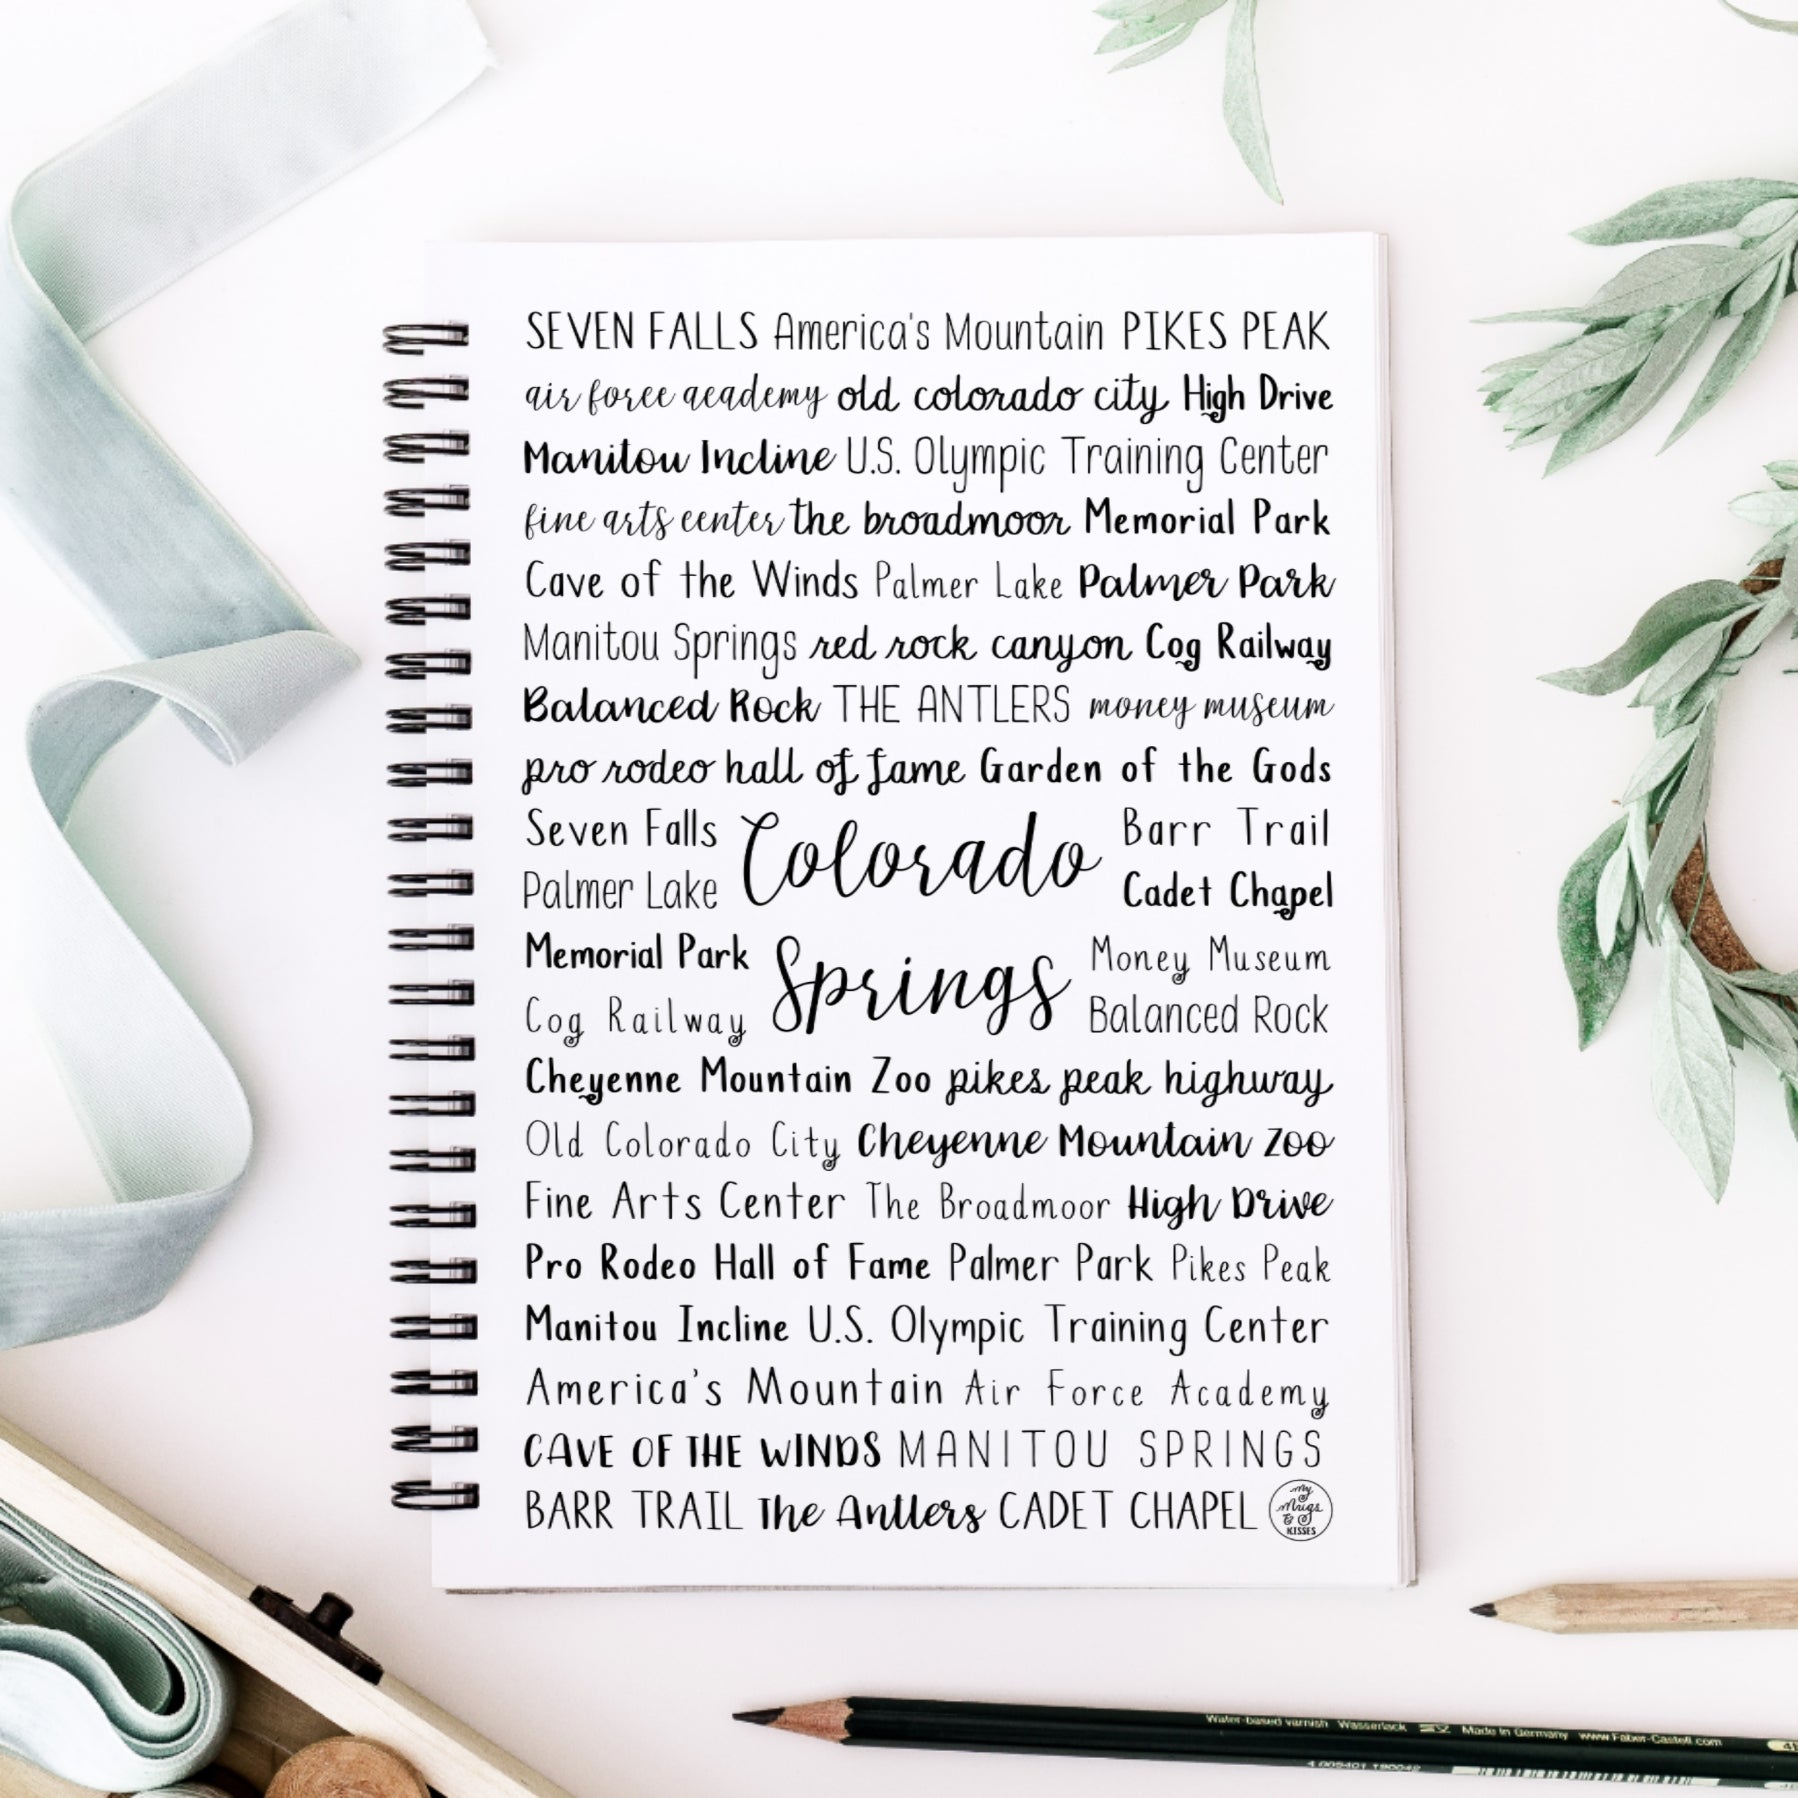 SEVEN FALLS America's Mountain PIKES PEAK
air force academy old colorado city High Drive
Manitou Incline U.S. Olympic Training Center
fine arts center the broadmoor Memorial Park
Cave of the Winds Palmer Lake Palmer Park
Manitou Springs red rock canyon Cog Railway
Balanced Rock THE ANTLERS money museum
pro rodeo hall of fame Garden of the Gods
Seven Falls
Palmer Lake
Colorado
Barr Trail
Cadet Chapel
Memorial Park
Cog Railway
Springs
Money Museum
Balanced Rock
Cheyenne Mountain Zoo pikes peak highway
Old Colorado City Cheyenne Mountain Zoo
Fine Arts Center The Broadmoor High Drive
Pro Rodeo Hall of Fame Palmer Park Pikes Peak
Manitou Incline U.S. Olympic Training Center
America's Mountain Air Force Academy
CAVE OF THE WINDS MANITOU SPRINGS
BARR TRAIL The Antlers CADET CHAPEL
My
Mugs
&
KISSES
Water-based varnish Wasserlack Made in Germany www.Faber-Castell.com